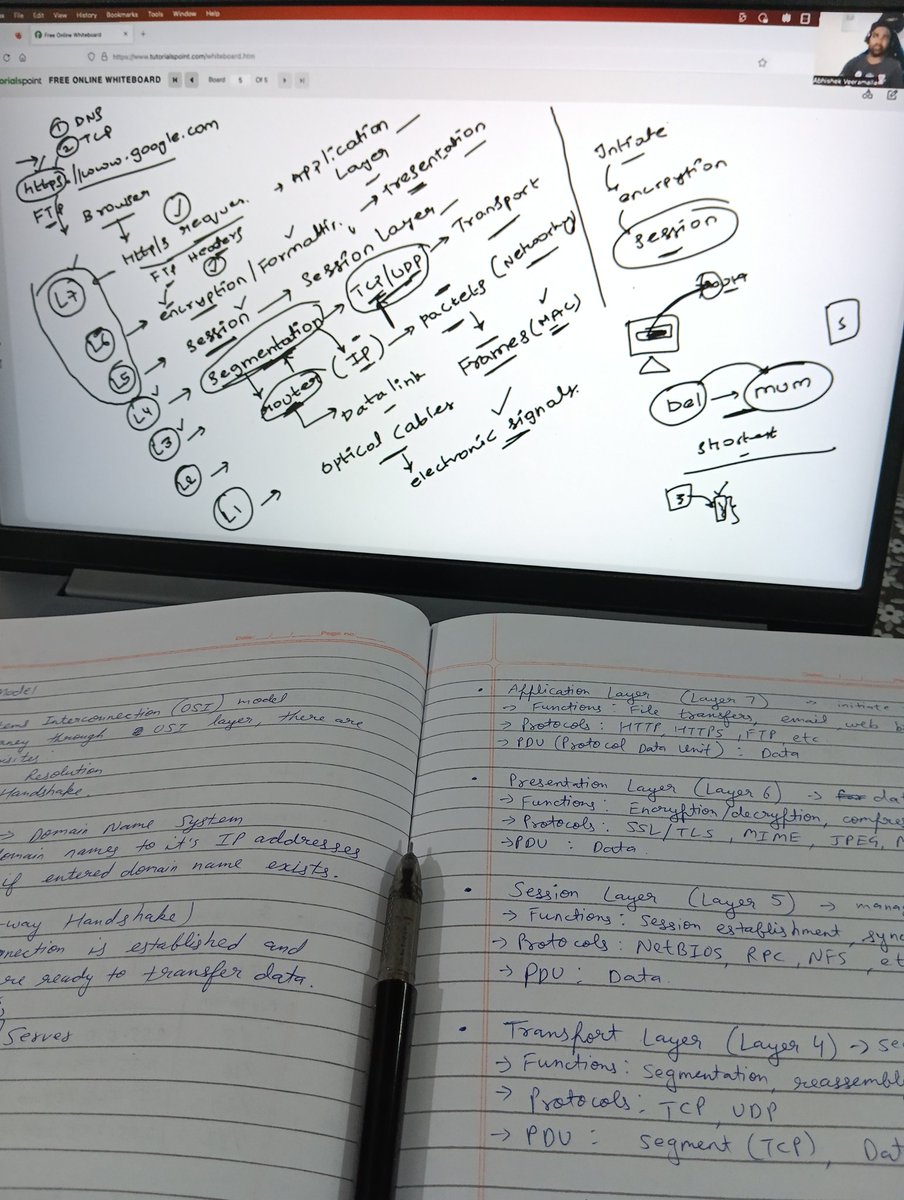 File Edit View History Bookmarks Tools Window Help
Free Online Whiteboard
https://www.tutorialspoint.com/whiteboard.htm
orialspoint FREE ONLINE WHITEBOARD Board 5 Of 5
Abhishek Veeramalla
① DNS
② TCP
https://www.google.com
FTP
Browser
L7 → Https reques. → Application Layer
FTP Headers
L6 → encryption/Formattin. → Presentation
L5 → session → Session Layer
L4 → Segmentation → TCP/UDP → Transport
L3 → Router (IP) → Packets (Networky)
L2 → Datalink Frames (MAC)
L1 → optical cables
electronic signals.
Intiate
encreyption
Session
Del → mum
shortest
S
model
Interconnection (OSI) model
through OSI layer, there are
Resolution
Handshake.
→ Domain Name System
domain names to it's IP addresses
if entered domain name exists.
-way Handshake)
nnection is established and
re ready to transfer data.
Server
Date Page no
• Application Layer (Layer 7) → initiate
→ Functions: File transfers, email, web b
→ Protocols: HTTP, HTTPS, FTP etc
→ PDU (Protocol Data Unit): Data
• Presentation Layer (Layer 6) → for dat
→ Functions: Encryption/decryption, compres
→ Protocols: SSL/TLS, MIME, JPEG,
→ PDU: Data.
• Session Layer (Layer 5) → manag
→ Functions: Session establishment, sync
→ Protocols: NetBIOS, RPC, NFS, etc
→ PDU: Data.
• Transport Layer (Layer 4) → se
→ Functions: Segmentation, reassembl
→ Protocols: TCP, UDP
→ PDU: Segment (TCP), Dat